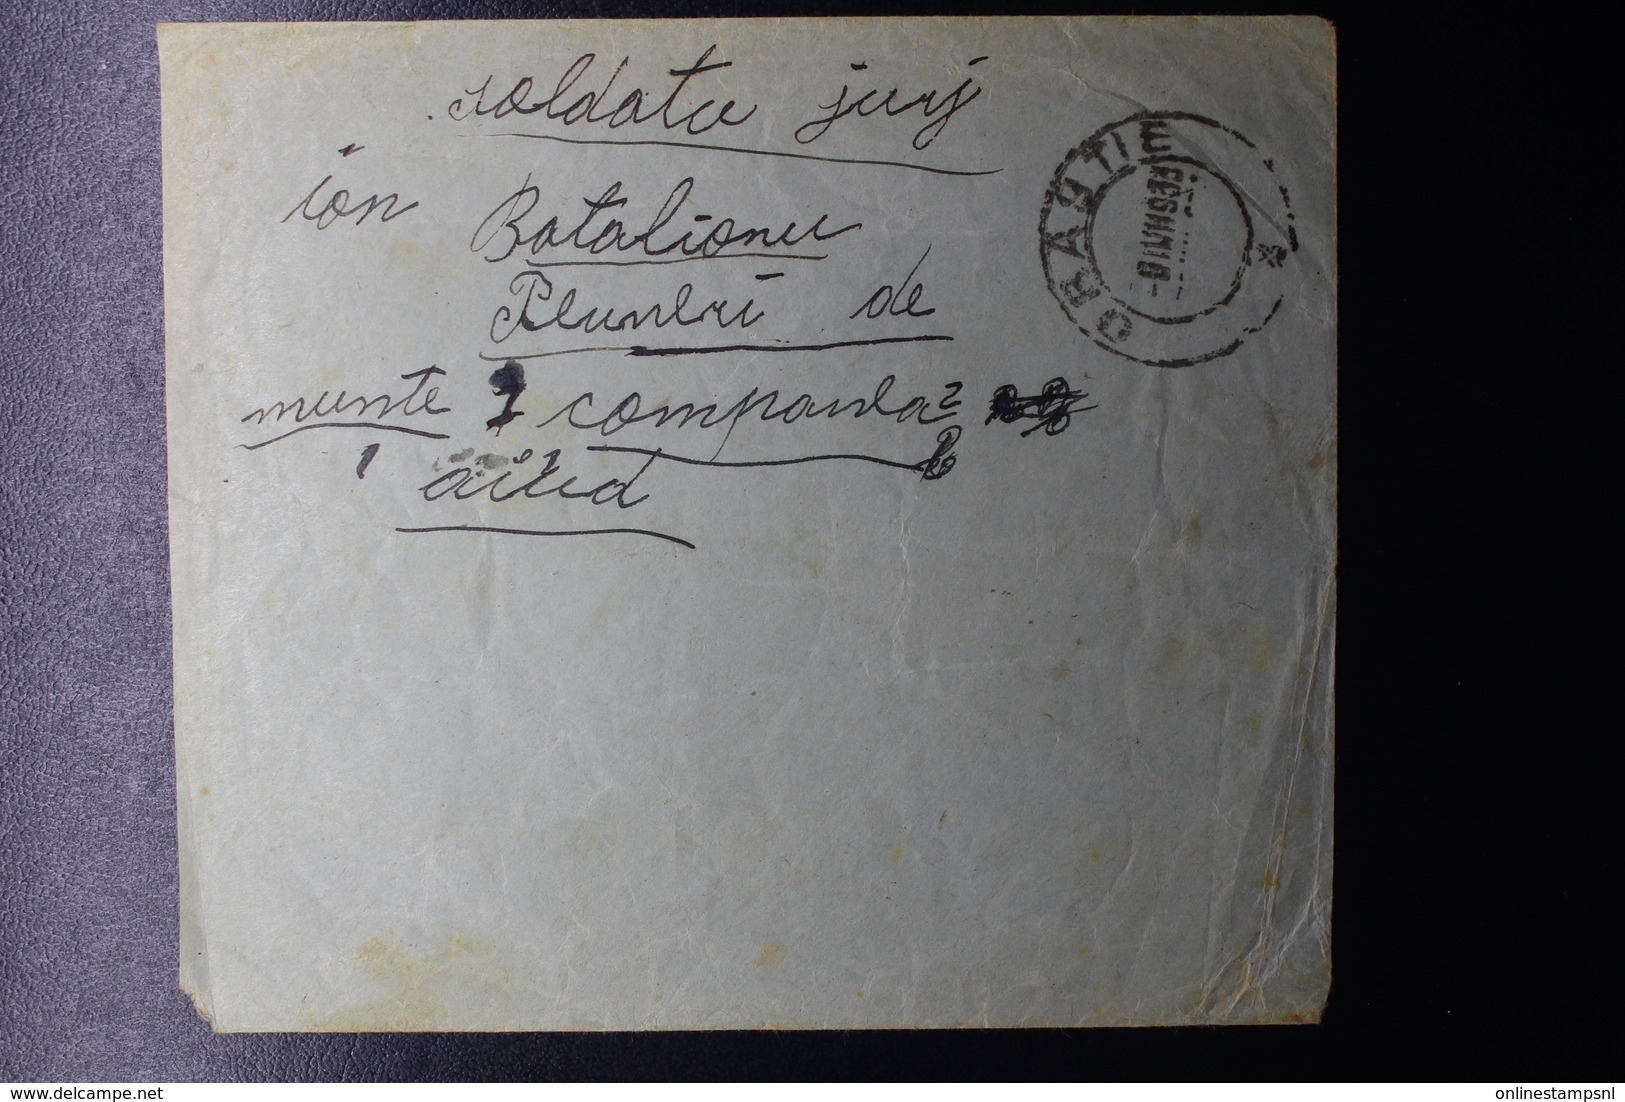 soldatu jurj
ion Batalionu
de
munte 1 compania 2
1 aiud
ORASTIE
delcampe.net
onlinestampsnl